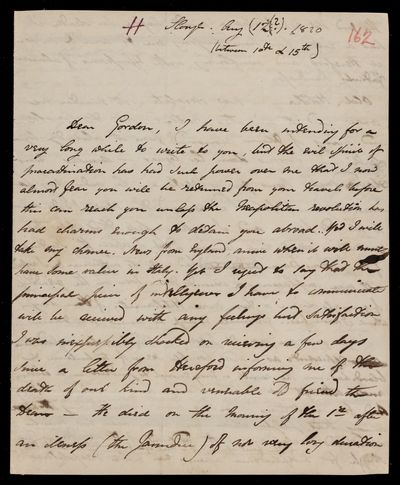 H Slough. Aug (12)? 1820 162
(between 10th & 15th)
Dear Gordon, I have been intending for a
very long while to write to you, but the evil spirit of
procrastination has had such power over me that I now
almost fear you will be returned from your travels before
this can reach you unless the Neapolitan revolution has
had charms enough to detain you abroad. Yet I will
take my chance. News from England arrive when it will must
have some value in Italy. Yet I regret to say that the
principal piece of intelligence I have to communicate
will be received with any feelings but satisfaction
I was inexpressibly shocked on receiving a few days
since a letter from Hereford informing me of the
death of our kind and venerable friend the
Dean — He died on the morning of the 1st after
an illness (the Jaundice) of not very long duration